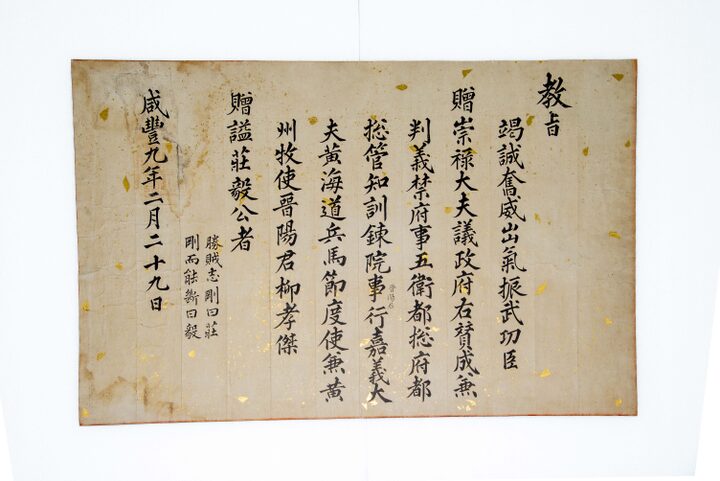 教旨
竭誠奮威出氣振武功臣
贈崇禄大夫議政府右賛成兼
判義禁府事五衛都捴府都
捴管知訓鍊院事行嘉義大
夫黄海道兵馬節度使兼黄
州牧使晉陽君柳孝傑
贈諡莊毅公者
勝賊志剛曰莊
剛而能斷曰毅
咸豐九年二月二十九日